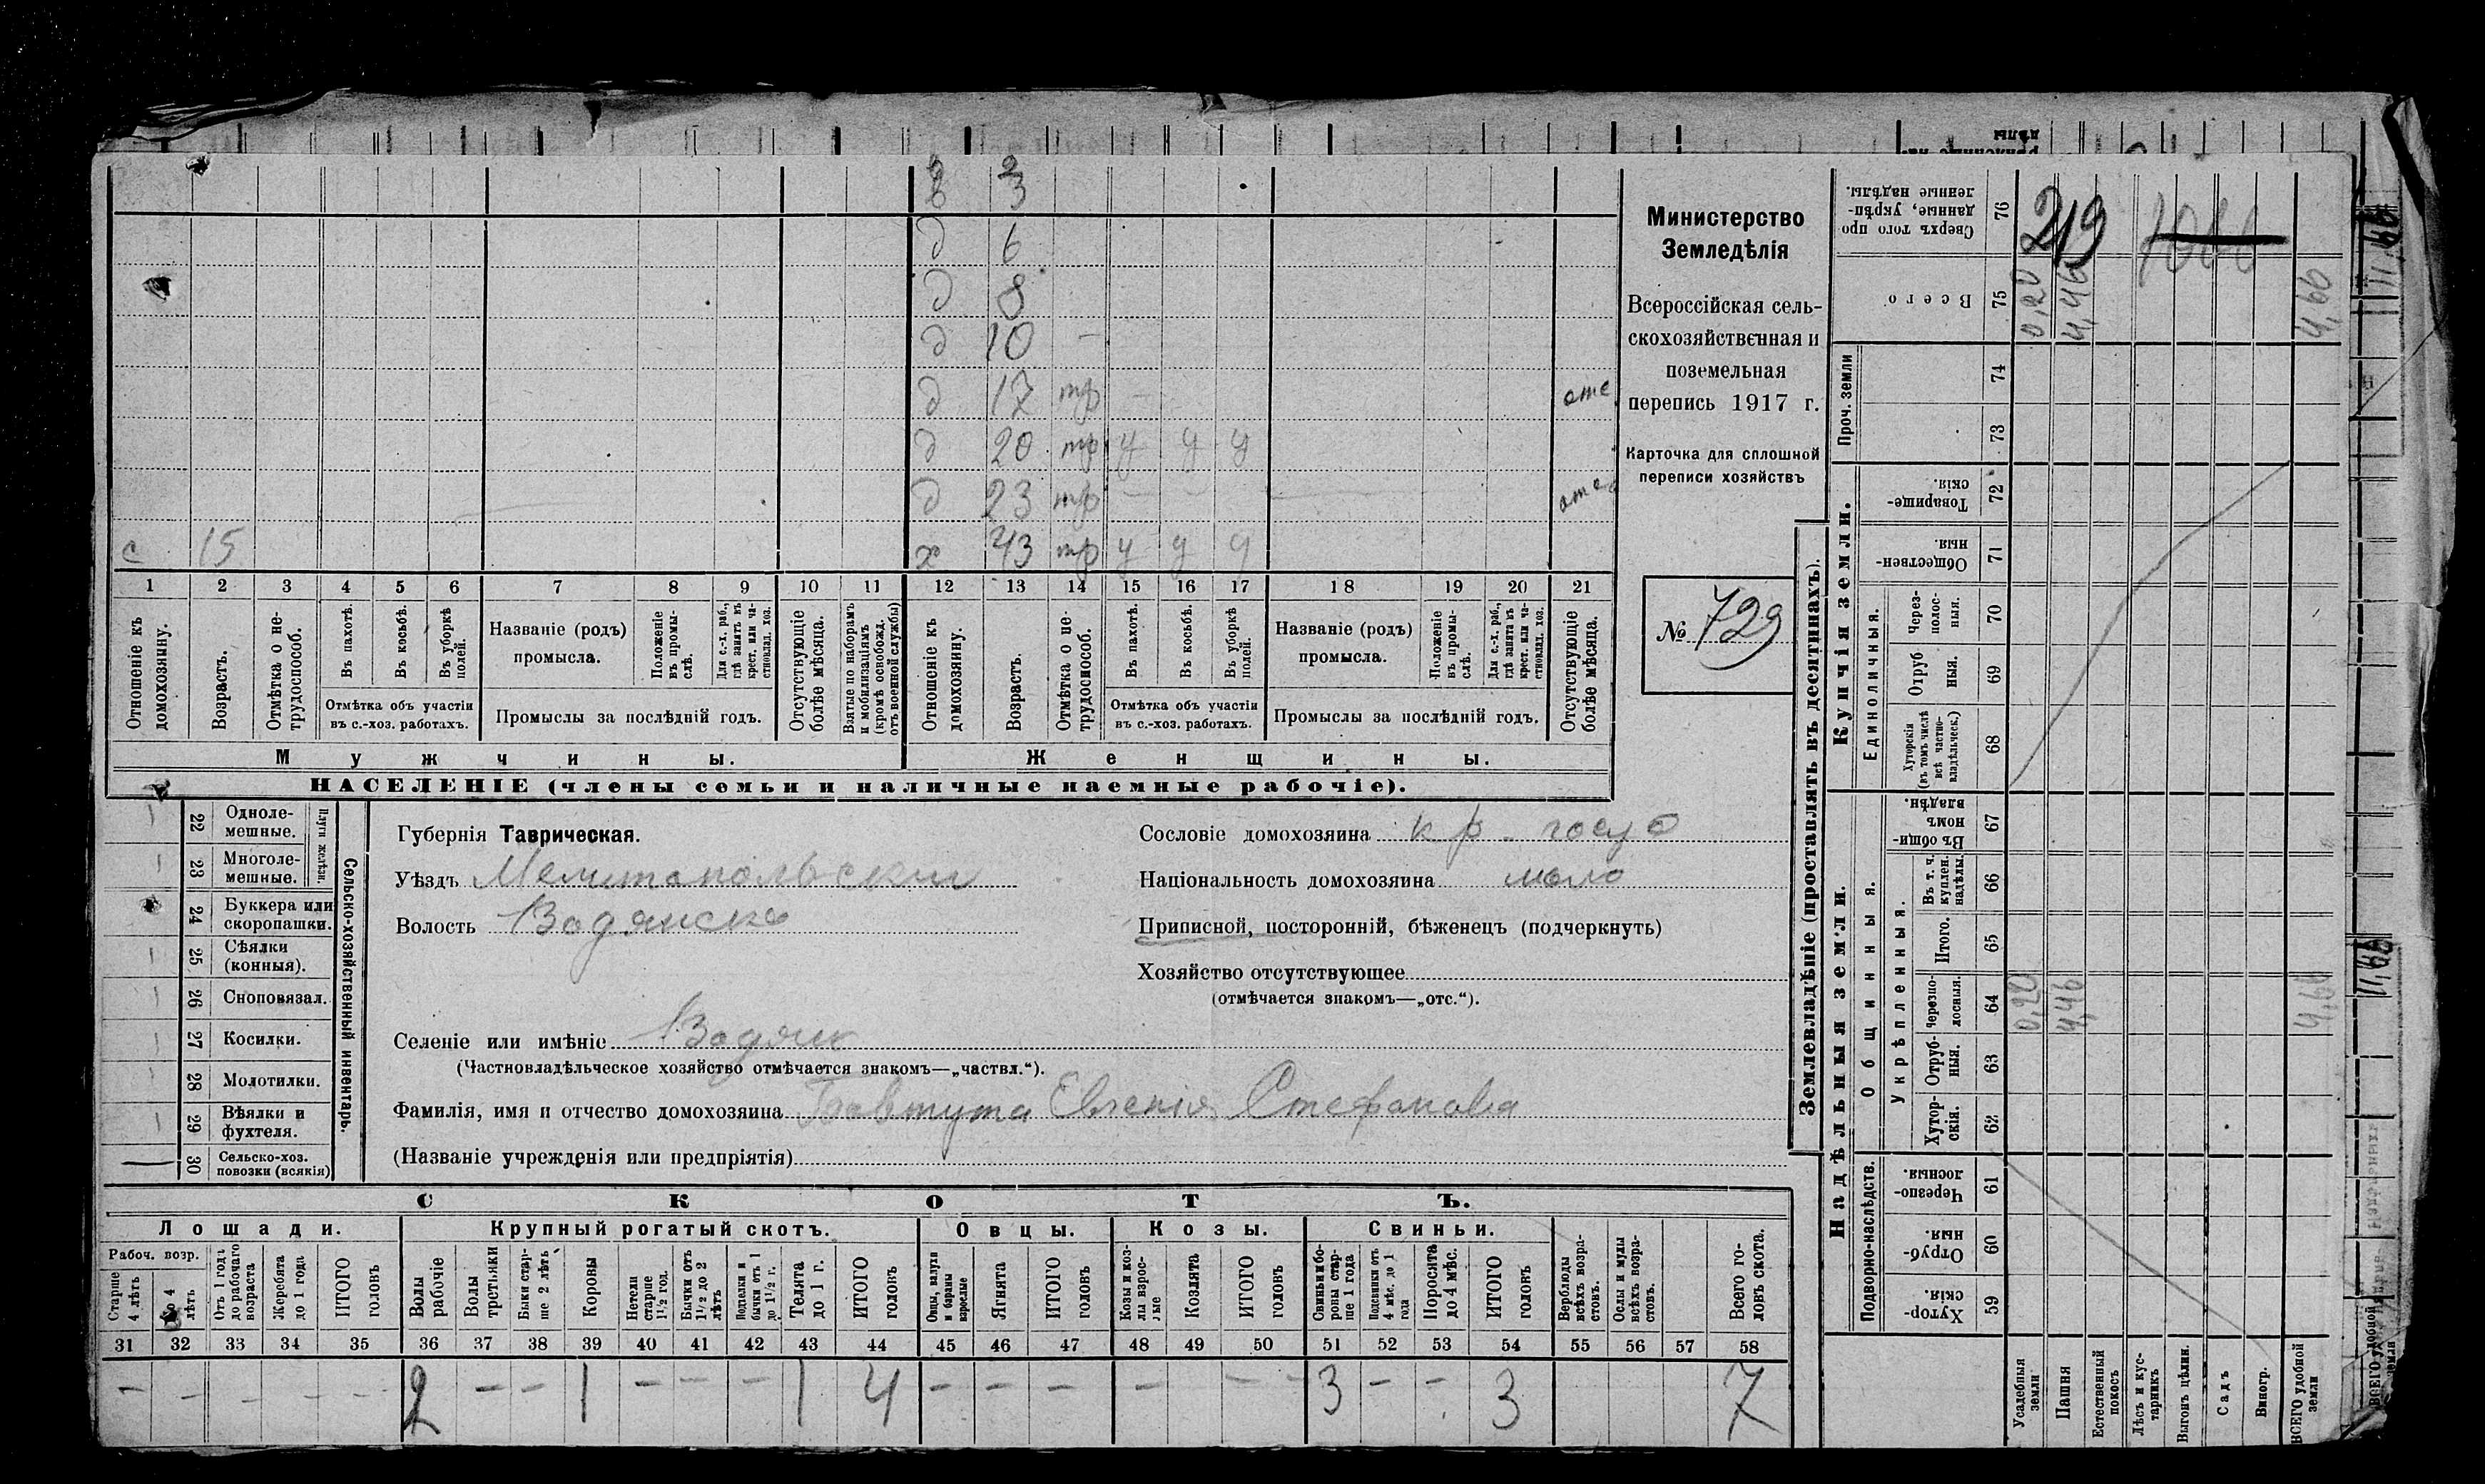 в 3
д 6
д 8
д 10 -
д 17 тр - отс
д 20 тр у у у
д 23 тр - - отс
с 15 х 43 тр у у у
1 2 3 4 5 6 7 8 9 10 11 12 13 14 15 16 17 18 19 20 21
Отношеніе къ домохозяину.
Возрастъ.
Отмѣтка о не-трудоспособ.
Въ пахотѣ.
Въ косьбѣ.
Въ уборкѣ полей.
Отмѣтка объ участіи въ с.-хоз. работахъ.
Названіе (родъ) промысла.
Положеніе въ промы-слѣ.
Для с.-х. раб., гдѣ занятъ въ крест. или ча-стновлад. хоз.
Промыслы за послѣдній годъ.
Отсутствующіе болѣе мѣсяца.
Взятые по наборамъ и мобилизаціямъ (кромѣ освобожд. отъ военной службы)
Отношеніе къ домохозяину.
Возрастъ.
Отмѣтка о не-трудоспособ.
Въ пахотѣ.
Въ косьбѣ.
Въ уборкѣ полей.
Отмѣтка объ участіи въ с.-хоз. работахъ.
Названіе (родъ) промысла.
Положеніе въ промы-слѣ.
Для с.-х. раб., гдѣ занятъ въ крест. или ча-стновлад. хоз.
Промыслы за послѣдній годъ.
Отсутствующіе болѣе мѣсяца.
Мужчины. Женщины.
НАСЕЛЕНІЕ (члены семьи и наличные наемные рабочіе).
Министерство
Земледѣлія
Всероссійская сель-
скохозяйственная и
поземельная
перепись 1917 г.
Карточка для сплошной
переписи хозяйствъ
№ 729
22 Одноле-мешные.
23 Многоле-мешные.
Плуги желѣзн.
24 Буккера или скоропашки.
25 Сѣялки (конныя).
26 Сноповязал.
27 Косилки.
28 Молотилки.
29 Вѣялки и фухтеля.
30 Сельско-хоз. повозки (всякія)
Сельско-хозяйственный инвентарь.
Губернія Таврическая.
Уѣздъ Мелитопольскій
Волость Водянска
Селеніе или имѣніе Водян
(Частновладѣльческое хозяйство отмѣчается знакомъ—„частвл.“).
Фамилія, имя и отчество домохозяина Бовтута Евгенія Стефанова
(Названіе учрежденія или предпріятія)
Сословіе домохозяина кр. госуд
Національность домохозяина мало
Приписной, посторонній, бѣженецъ (подчеркнуть)
Хозяйство отсутствующее
(отмѣчается знакомъ—„отс.“).
СКОТЪ.
Лошади. Крупный рогатый скотъ. Овцы. Козы. Свиньи.
Рабоч. возр.
Старше 4 лѣтъ
До 4 лѣтъ
Отъ 1 года до рабочаго возраста
Жеребята до 1 года
ИТОГО головъ
Волы рабочіе
Волы третьяки
Быки стар-ше 2 лѣтъ
Коровы
Нетели старше 1 1/2 год.
Бычки отъ 1 1/2 до 2 лѣтъ
Подтелки и бычки отъ 1 до 1 1/2 г.
Телята до 1 г.
ИТОГО головъ
Овцы, валухи и бараны взрослые
Ягнята
ИТОГО головъ
Козы и коз-лы взрос-лые
Козлята
ИТОГО головъ
Свиньи и бо-ровы стар-ше 1 года
Подсвинки отъ 4 мѣс. до 1 года
Поросята до 4 мѣс.
ИТОГО головъ
Верблюды всѣхъ возра-стовъ.
Ослы и мулы всѣхъ возра-стовъ.
Всего го-ловъ скота.
31 32 33 34 35 36 37 38 39 40 41 42 43 44 45 46 47 48 49 50 51 52 53 54 55 56 57 58
- - - - - 2 - - 1 - - - 1 4 - - - - - - 3 - - 3 7
Землевладѣніе (проставлять въ десятинахъ).
Купчія земли.
Надѣльныя земли.
Сверхъ того про-данные, укрѣп-ленные надѣлы. 76 219
Всего 75 0,20 4,46 4,66
Проч. земли
74
73
Товарище-скія. 72
Обществен-ныя. 71
Единоличныя.
Через-полос-ныя. 70
Отруб-ныя. 69
Хуторскія (въ томъ числѣ всѣ частно-владѣльческ.) 68
Общинныя.
Въ общи-нномъ владѣн. 67
Укрѣпленныя.
Въ т. ч. куплен. надѣлы. 66
Итого. 65
Черезпо-лосныя. 64 0,20 4,46 4,66
Отруб-ныя. 63
Хутор-скія. 62
Подворно-наслѣдств.
Черезпо-лосныя 61
Отруб-ныя. 60
Хутор-скія. 59
Усадебныя земли
Пашня
Естественный покосъ
Лѣсъ и кус-тарникъ
Выгонъ цѣлин.
Садъ
Виногр.
ВСЕГО удобной земли
ВСЕГО удобной земли